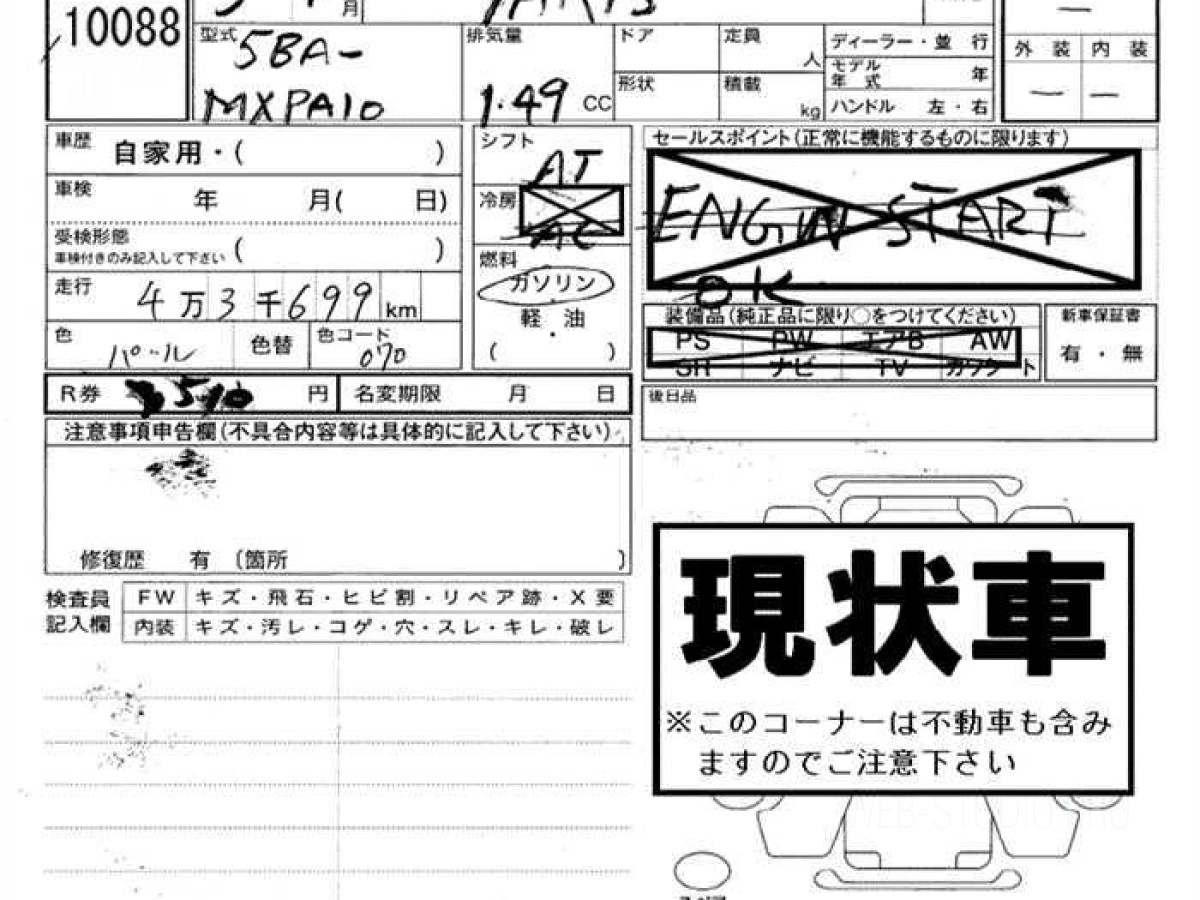 10088
月
型式 5BA-
MXPA10
排気量
1.49 CC
ドア
定員
人
形状
積載
kg
ディーラー・並 行
モデル
年 式 年
ハンドル 左・右
外 装 内 装
— —
車歴 自家用・( )
車検 年 月( 日)
受検形態
車検付きのみ記入して下さい ( )
走行 4万3千699km
色 パール
色替
色コード
070
シフト
AT
冷房
AC
燃料
ガソリン
軽・油
・
( )
セールスポイント(正常に機能するものに限ります)
ENGIN START
OK
装備品(純正品に限り○をつけてください)
PS PW エアB AW
SR ナビ TV カワシート
新車保証書
有・無
R券 円
名変期限 月 日
後日品
注意事項申告欄(不具合内容等は具体的に記入して下さい)
修復歴 有 〔箇所 〕
検査員
記入欄
FW キズ・飛石・ヒビ割・リペア跡・X要
内装 キズ・汚レ・コゲ・穴・スレ・キレ・破レ
現状車
※このコーナーは不動車も含み
ますのでご注意下さい